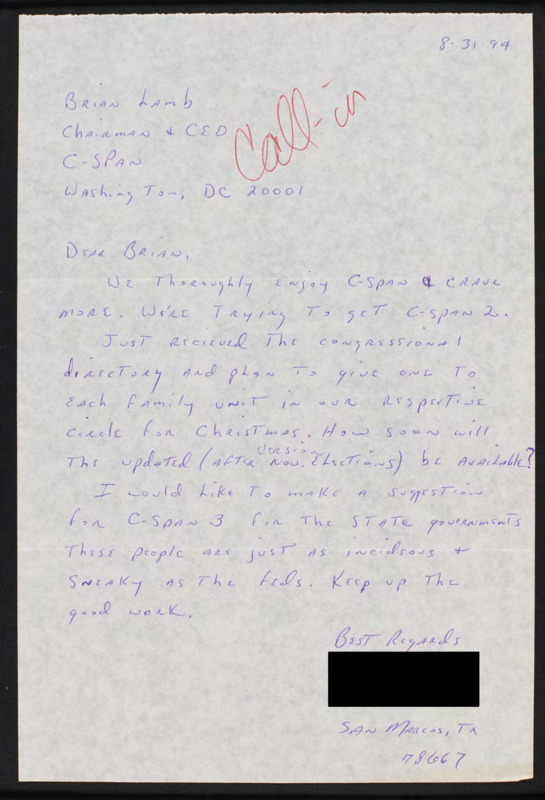 8-31-94
Brian Lamb
Chairman & CEO
C-SPAN
Washington, DC 20001
Call-in
Dear Brian,
We thoroughly enjoy C-SPAN & crave
more. We're trying to get C-SPAN 2.
Just recieved the congressional
directory and plan to give one to
each family unit in our respective
circle for Christmas. How soon will
version
the updated (after Nov. Elections) be available?
I would like to make a suggestion
for C-SPAN 3 for the STATE governments
These people are just as incideous &
sneaky as the feds. Keep up the
good work.
Best Regards
San Marcos, Tx
78667